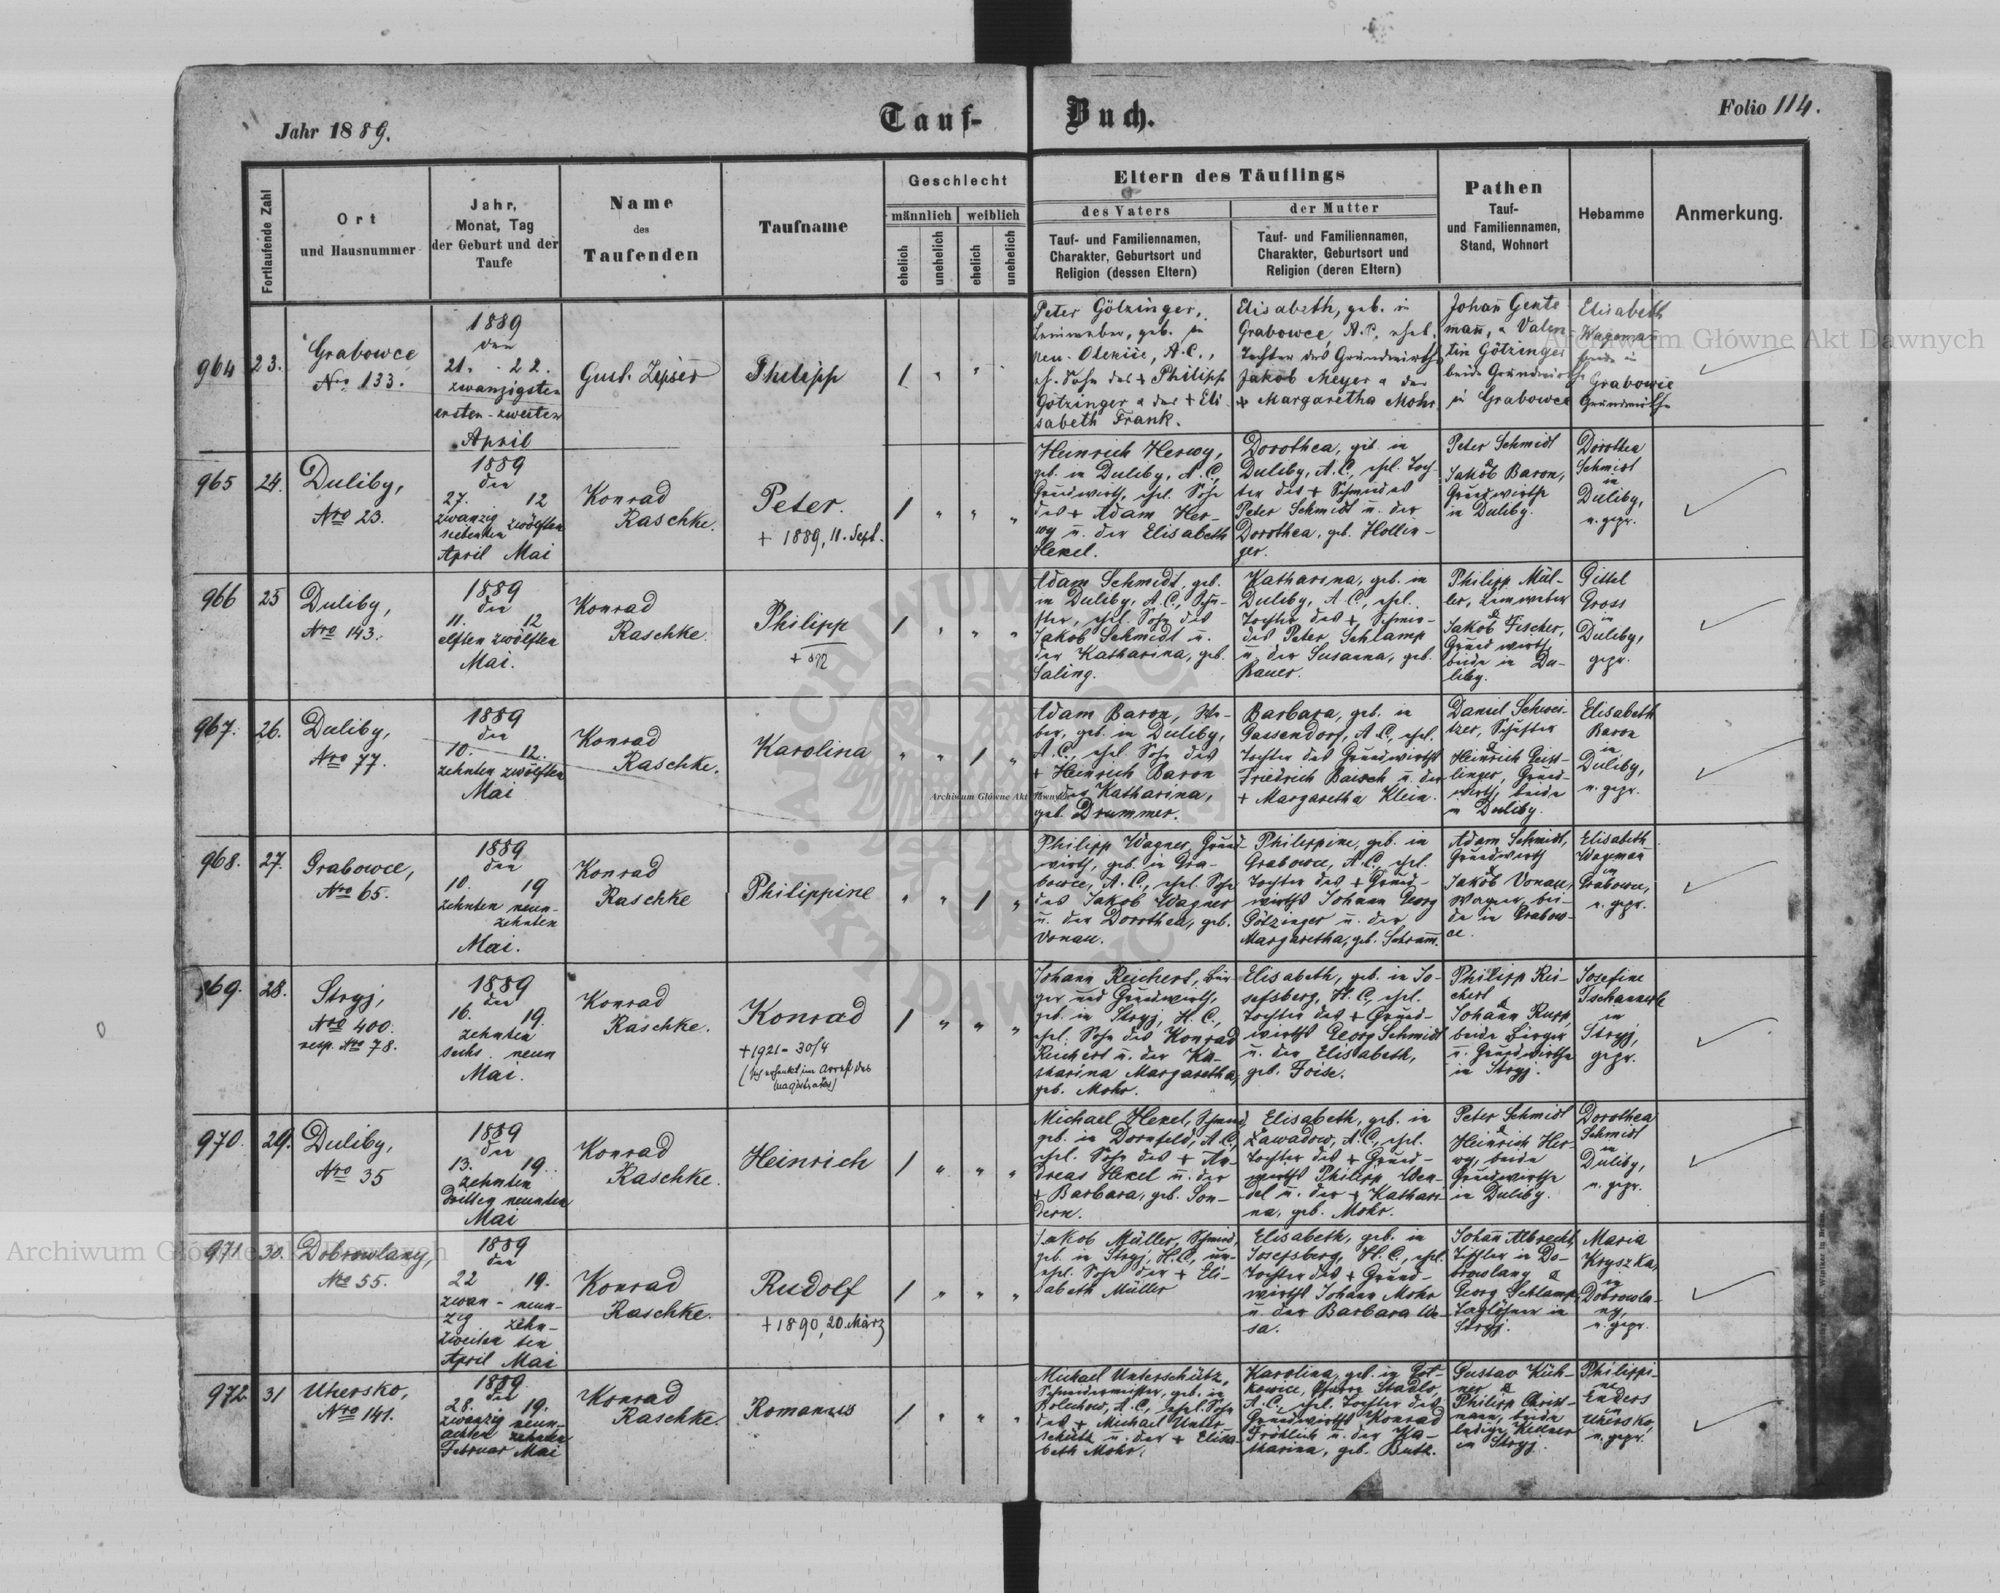 Jahr 1889.
Tauf-Buch.
Folio 114.
Fortlaufende Zahl
Ort
und Hausnummer
Jahr,
Monat, Tag
der Geburt und der
Taufe
Name
des
Taufenden
Taufname
Geschlecht
männlich
weiblich
ehelich
unehelich
ehelich
unehelich
Eltern des Täuflings
des Vaters
Tauf- und Familiennamen,
Charakter, Geburtsort und
Religion (dessen Eltern)
der Mutter
Tauf- und Familiennamen,
Charakter, Geburtsort und
Religion (deren Eltern)
Pathen
Tauf-
und Familiennamen,
Stand, Wohnort
Hebamme
Anmerkung.
964 23.
Grabowce
Nro 133.
1889
den
21. 22.
zwanzigsten
ersten - zweiten
April
Gust. Zipser
Philipp
Peter Götzinger,
Leinweber, geb. in
A.C.,
ehl. Sohn des + Philipp
Götzinger u. der + Eli-
sabeth Frank.
Elisabeth, geb. in
Grabowce, A.C., ehel.
Tochter des Grundwirths
Jakob Meyer u. der
+ Margaretha Mohr
Johann Gente
mann, u. Valen-
tin Götzinger
beide Grundwirthe
in Grabowce
Elisabeth
Wageman
Grabowce
965 24.
Duliby,
Nro 23.
1889
den
27. 12
zwanzig zwölften
siebenten
April Mai
Konrad
Raschke.
Peter.
+ 1889, 11. Sept.
Heinrich Herwy,
geb. in Duliby, A.C.,
Grundwirth, ehel. Sohn
des + Adam Her-
wy u. der Elisabeth
Hexel.
Dorothea, geb. in
Duliby, A.C., ehel. Toch-
ter des + Schmiedes
Peter Schmidt u. der
Dorothea, geb. Hollen-
ger.
Peter Schmidt
&
Jakob Baron,
Grundwirthe
in Duliby.
Dorothea
Schmidt
in
Duliby,
u. gepr.
966 25
Duliby,
Nro 143.
1889
den
11. 12
elften zwölften
Mai.
Konrad
Raschke.
Philipp
Adam Schmidt, geb.
in Duliby, A.C., Schu-
ster, ehel. Sohn des
Jakob Schmidt u.
der Katharina, geb.
Saling.
Katharina, geb. in
Duliby, A.C., ehel.
Tochter des + Schmie-
des Peter Schlamp
u. der Susanna, geb.
Bauer.
Philipp Mül-
ler, Leinweber
&
Jakob Fischer,
Grundwirth
beide in Du-
liby.
Gittel
Gross
in
Duliby,
gepr.
967. 26.
Duliby,
Nro 77.
1889
den
10. 12.
zehnten zwölften
Mai
Konrad
Raschke.
Karolina
Adam Baron, We-
ber, geb. in Duliby,
A.C., ehel. Sohn des
+ Heinrich Baron
u. der Katharina,
geb. Drummer.
Barbara, geb. in
Gassendorf, A.C., ehel.
Tochter des Grundwirths
Friedrich Baisch u. der
+ Margaretha Klein.
Daniel Schwei-
tzer, Schuster
&
Heinrich Geist-
linger, Grund-
wirth, beide
in Duliby.
Elisabeth
Baron
in
Duliby,
u. gepr.
968. 27.
Grabowce,
Nro 65.
1889
den
10. 19
zehnten neun-
zehnten
Mai.
Konrad
Raschke
Philippine
Philipp Wagner, Grund-
wirth, geb. in Gra-
bowce, A.C., ehel. Sohn
des Jakob Wagner
u. der Dorothea, geb.
Vonau.
Philippine, geb. in
Grabowce, A.C., ehel.
Tochter des + Grund-
wirths Johann Georg
Götzinger u. der
Margaretha, geb. Schramm.
Adam Schmidt,
Grundwirth
&
Jakob Vonau,
Wagner, bei-
de in Grabow-
ce.
Elisabeth
Wageman
in
Grabowce,
u. gepr.
969. 28.
Stryj,
Nro 400.
resp. Nro 78.
1889
den
16. 19.
zehnten
sechs. neun
Mai.
Konrad
Raschke.
Konrad
+ 1921 - 30/4
(sich erhenkt im Arrest des
Magistrates)
Johann Reichert, Bür-
ger und Grundwirth,
geb. in Stryj, H.C.,
ehel. Sohn des Konrad
Reichert u. der Ka-
tharina Margaretha,
geb. Mohr.
Elisabeth, geb. in Jo-
sefsberg, H.C., ehel.
Tochter des + Grund-
wirths Georg Schmidt
u. der Elisabeth,
geb. Foise.
Philipp Rei-
chert
&
Johann Rupp,
beide Bürger
u. Grundwirthe
in Stryj.
Josefine
Tschannerle
in
Stryj,
gepr.
970. 29.
Duliby,
Nro 35
1889
den
13. 19.
zehnten
dritten neunten
Mai
Konrad
Raschke.
Heinrich
Michael Hexel, Schmied,
geb. in Dornfeld, A.C.,
ehel. Sohn des + An-
dreas Hexel u. der
+ Barbara, geb. Son-
dern.
Elisabeth, geb. in
Zawadow, A.C., ehel.
Tochter des + Grund-
wirths Philipp Wen-
del u. der + Kathari-
na, geb. Mohr.
Peter Schmidt
&
Heinrich Her-
wy, beide
Grundwirthe
in Duliby.
Dorothea
Schmidt
in
Duliby,
u. gepr.
971. 30.
Dobrowlany,
Nro 55.
1889
den
22 19.
zwan- neun-
zig zehn-
zweiten ten
April Mai
Konrad
Raschke.
Rudolf
+ 1890, 20. März
Jakob Müller, Schmied,
geb. in Stryj, H.C., un-
ehel. Sohn der + Eli-
sabeth Müller
Elisabeth, geb. in
Josefsberg, H.C., ehel.
Tochter des + Grund-
wirths Johann Mohr
u. der Barbara We-
sa.
Johann Albrecht,
Tischler in Do-
browlany &
Georg Schlamp,
Taglöhner in
Stryj.
Maria
Kryszka,
in
Dobrowla-
ny,
u. gepr.
972 31
Uhersko,
Nro 141.
1889
den
28. 19.
zwanzig neun-
achten zehnten
Februar Mai
Konrad
Raschke.
Romanus
Michael Unterschütz,
Schneidermeister, geb. in
Bolechow, A.C., ehel. Sohn
des + Michael Unter-
schütz u. der + Elisa-
beth Mohr.
Karolina, geb. in
A.C., ehel. Tochter des
Grundwirths Konrad
Fröhlich u. der Ka-
tharina, geb. Butz.
Gustav Küh-
ner &
Philipp Christ-
mann, beide
ledige Kellner
in Stryj.
Philippi-
ne
Enders
in
Uhersko,
u. gepr.
Archiwum Główne Akt Dawnych
Archiwum Główne Akt Dawnych
Archiwum Główne Akt Dawnych